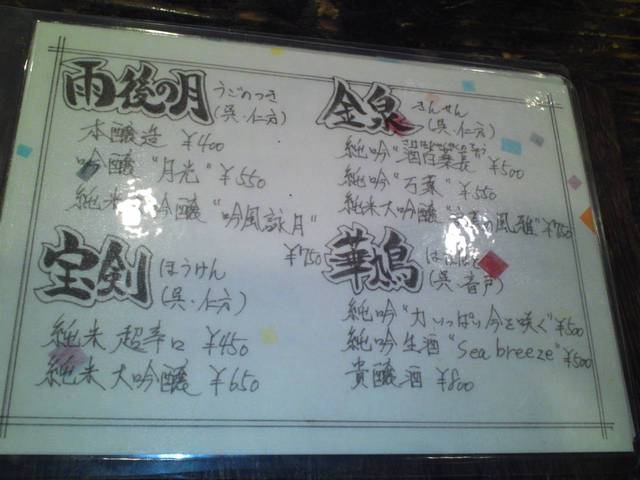 雨後の月 うごのつき
(呉・仁方)
本醸造 ¥400
吟醸 "月光" ¥550
純米 吟醸 "吟風詠月"
¥750
宝剣 ほうけん
(呉・仁方)
純米 超辛口 ¥450
純米 大吟醸 ¥650
金泉 きんせん
(呉・仁方)
純吟 "酒百薬長" ¥500
純吟 "石葉" ¥550
純米大吟醸 の風雅" ¥750
華鳩
(呉・音戸)
純吟 "力いっぱい今を咲く" ¥500
純吟生酒 "Sea breeze" ¥500
貴醸酒 ¥800